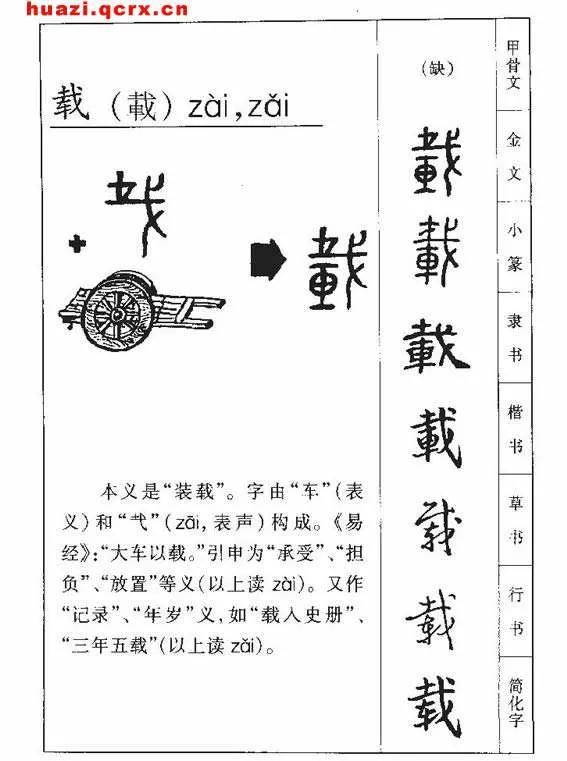 huazi.qcrx.cn
载（載）zài,zǎi
本义是“装载”。字由“车”（表
义）和“𢦏”（zāi，表声）构成。《易
经》：“大车以载。”引申为“承受”、“担
负”、“放置”等义（以上读 zài）。又作
“记录”、“年岁”义，如“载入史册”、
“三年五载”（以上读 zǎi）。
（缺）
載
載
載
載
载
载
载
甲骨文
金文
小篆
隶书
楷书
草书
行书
简化字